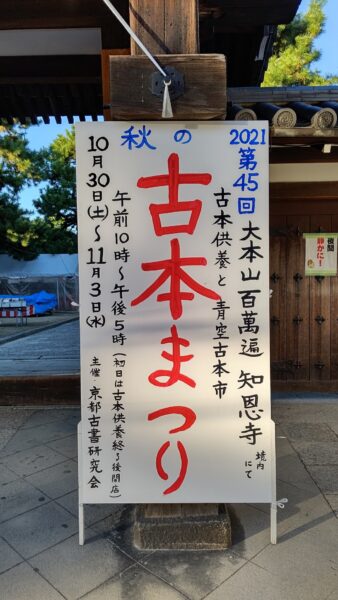 2021
第45回 大本山百萬遍 知恩寺 境内にて
古本供養と青空古本市
秋の
古本まつり
午前10時~午後5時(初日は古本供養終了後開店)
10月30日(土)~11月3日(水)
主催・京都古書研究会
夜間
静かに!